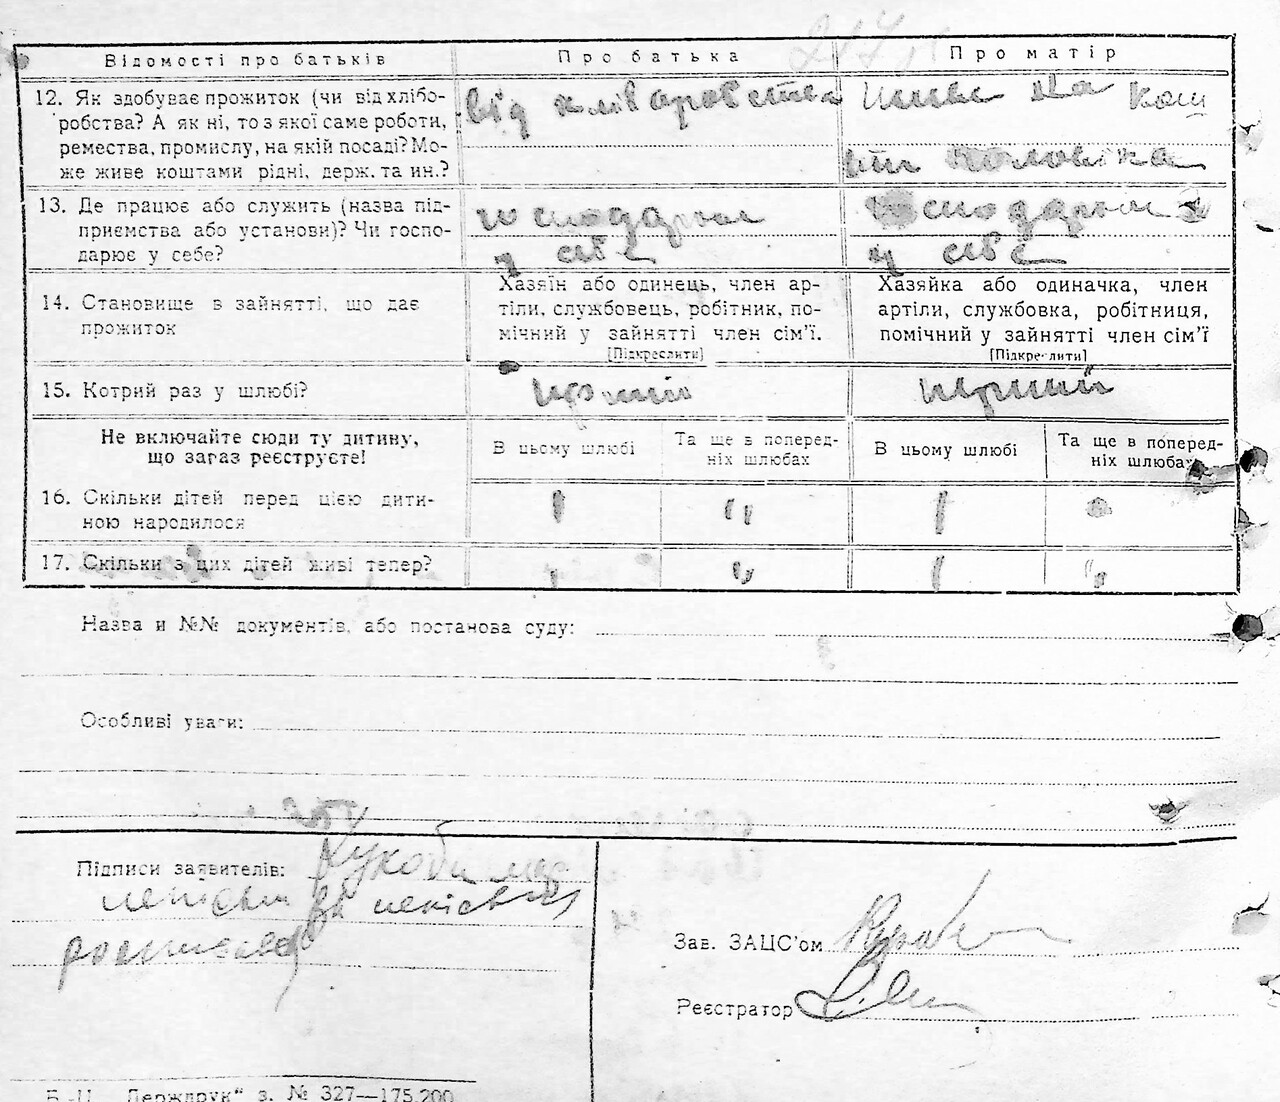 Відомості про батьків Про батька Про матір
12. Як здобуває прожиток (чи від хлібо-
робства? А як ні, то з якої саме роботи,
ремества, промислу, на якій посаді? Мо-
же живе коштами рідні, держ. та ин.?
від хліборобства
живе на кош
ти чоловіка
13. Де працює або служить (назва під-
приємства або установи)? Чи госпо-
дарює у себе?
господарює
у себе
господарює
у себе
14. Становище в зайнятті, що дає
прожиток
Хазяїн або одинець, член ар-
тіли, службовець, робітник, по-
мічний у зайнятті член сім'ї.
[Підкреслити]
Хазяйка або одиначка, член
артіли, службовка, робітниця,
помічний у зайнятті член сім'ї
[Підкреслити]
15. Котрий раз у шлюбі? перший
Не включайте сюди ту дитину,
що загаз реєструєте!
В цьому шлюбі
Та ще в поперед-
ніх шлюбах
В цьому шлюбі
Та ще в поперед-
ніх шлюбах
16. Скільки дітей перед цією дити-
ною народилося
17. Скільки з цих дітей живі тепер?
Назва и №№ документів, або постанова суду:
Особливі уваги:
Підписи заявителів:
за
Зав. ЗАЦС'ом
Реєстратор
Держдрук" з. № 327—175.200